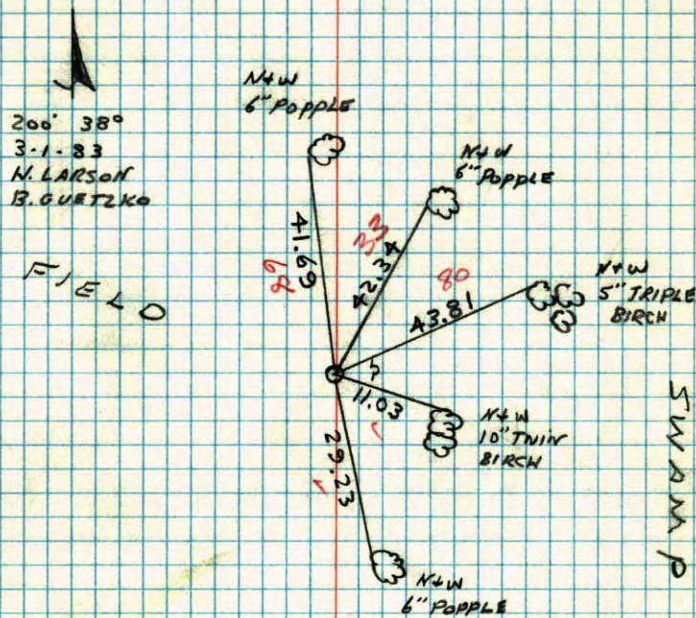 200' 38°
3-1-83
N. LARSON
B. GUETZKO
FIELD
N+W
6" POPPLE
N+W
6" POPPLE
N+W
5" TRIPLE
BIRCH
N+W
10" TWIN
BIRCH
N+W
6" POPPLE
SWAMP
41.69
68
43.24
33
43.81
80
11.03
29.23